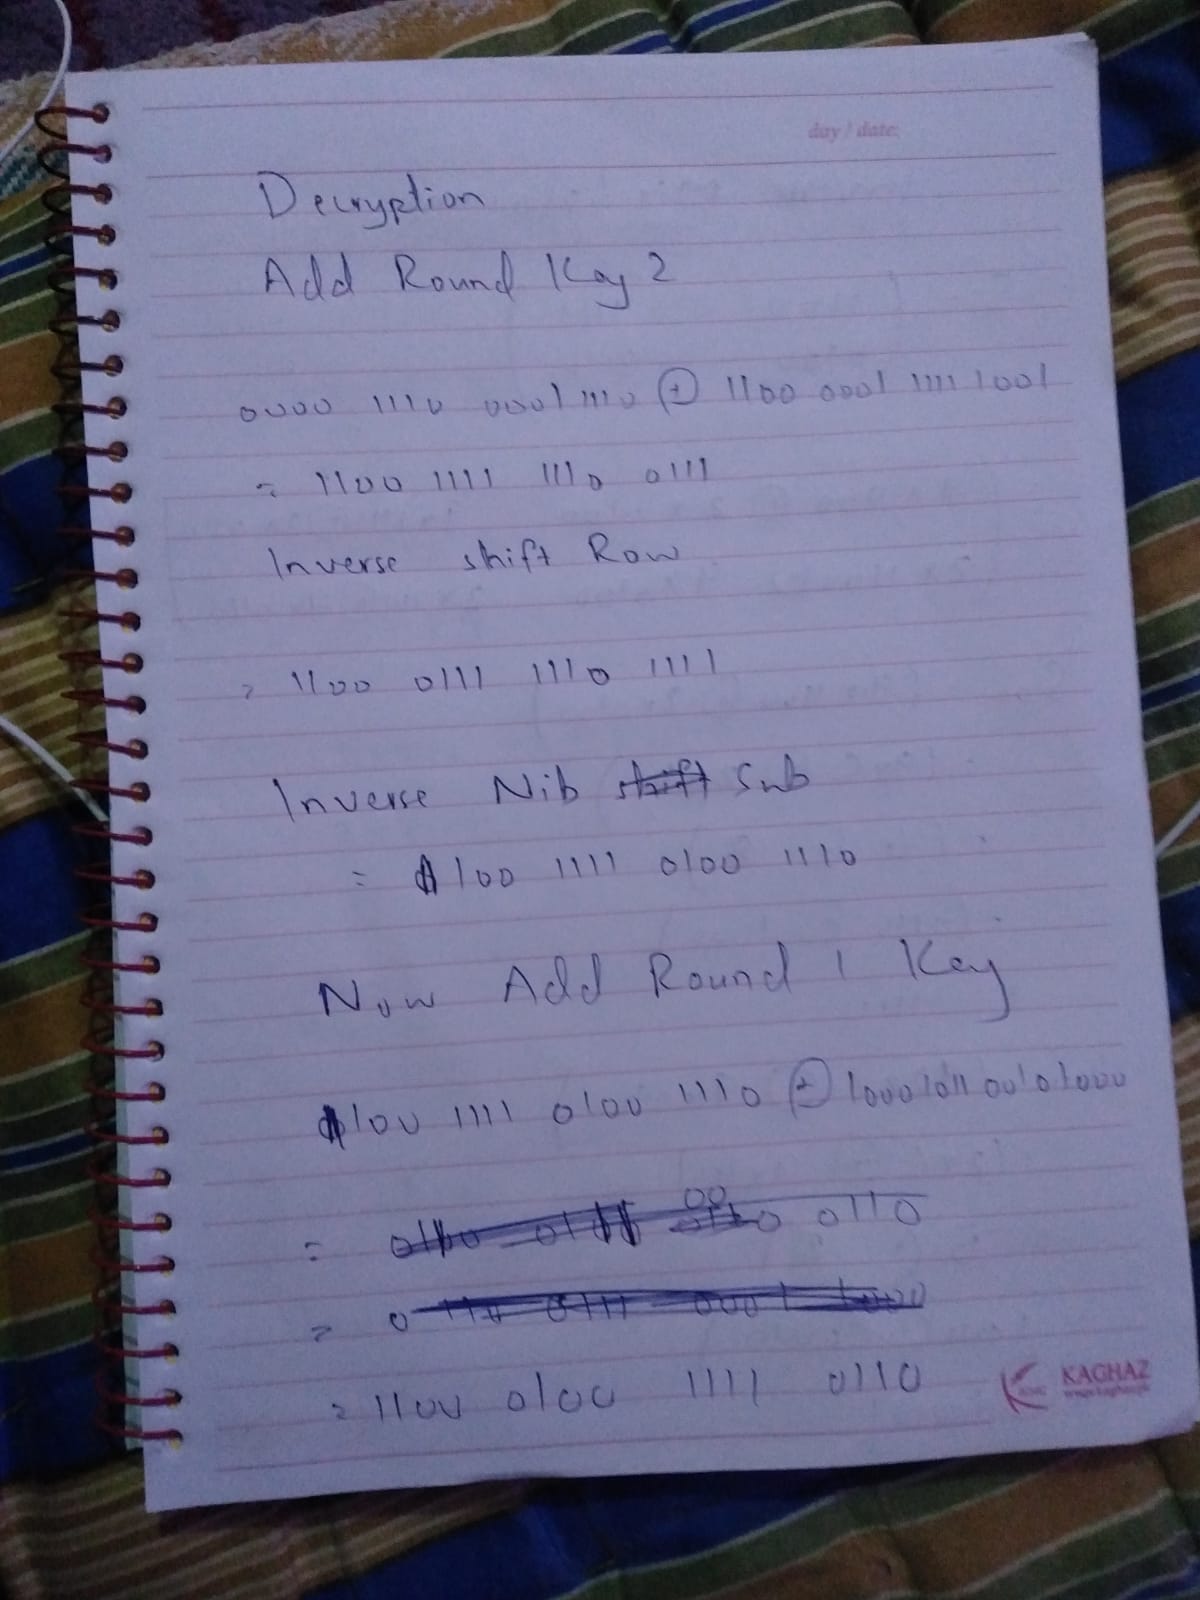 day / date:
Decryption
Add Round Key 2
0000 1110 0001 1110 ⊕ 1100 0001 1111 1001
= 1100 1111 1110 0111
Inverse shift Row
= 1100 0111 1110 1111
Inverse Nib shift Sub
= 1100 1111 0100 1110
Now Add Round 1 Key
1100 1111 0100 1110 ⊕ 1000 1011 0010 1000
= 00 0110
=
= 1100 0100 1111 0110
KAGHAZ